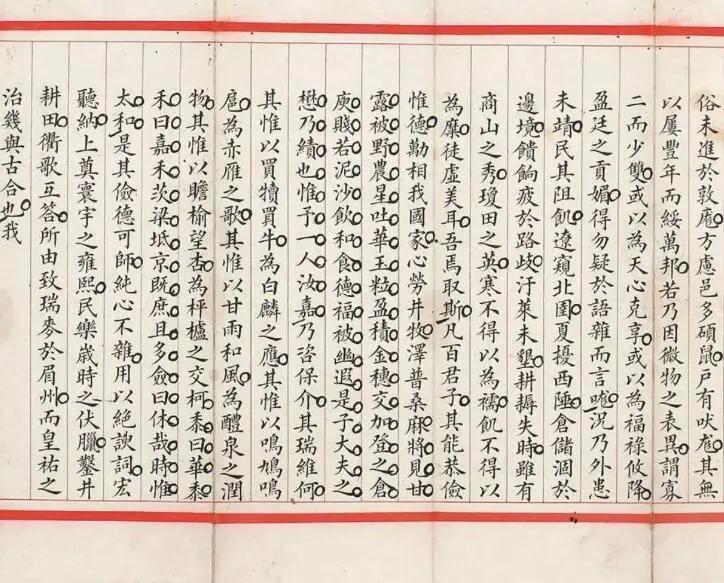 俗未進於敦龐方慮邑多碩鼠戶有吠尨其無
以屢豐年而綏萬邦若乃因微物之表異謂寡
二而少雙或以為天心克享或以為福祿攸降
盈廷之貢媚得勿疑於語雜而言哤況乃外患
未靖民其阻飢遼窺北圉夏擾西陲倉儲涸於
邊境饋餉疲於路歧汙萊未墾耕耨失時雖有
商山之秀瓊田之英寒不得以為襦飢不得以
為糜徒虛美耳吾焉取斯凡百君子其能恭儉
惟德勤相我國家心勞井牧澤普桑麻將見甘
露被野農星吐華玉粒盈積金穗交加登之倉
庾賤若泥沙飲和食德福被幽遐是子大夫之
懋乃績也惟予一人汝嘉乃咨保介其瑞維何
其惟以買犢買牛為白麟之應其惟以鳴鳩鳴
扈為赤雁之歌其惟以甘雨和風為醴泉之潤
物其惟以瞻榆望杏為枰櫨之交柯黍曰華黍
禾曰嘉禾茨梁坻京既庶且多僉曰休哉時惟
太和是其儉德可師純心不雜用以絕諛詞宏
聽納上奠寰宇之雍熙民樂歲時之伏臘鑿井
耕田衢歌互答所由致瑞麥於眉州而皇祐之
治幾與古合也我